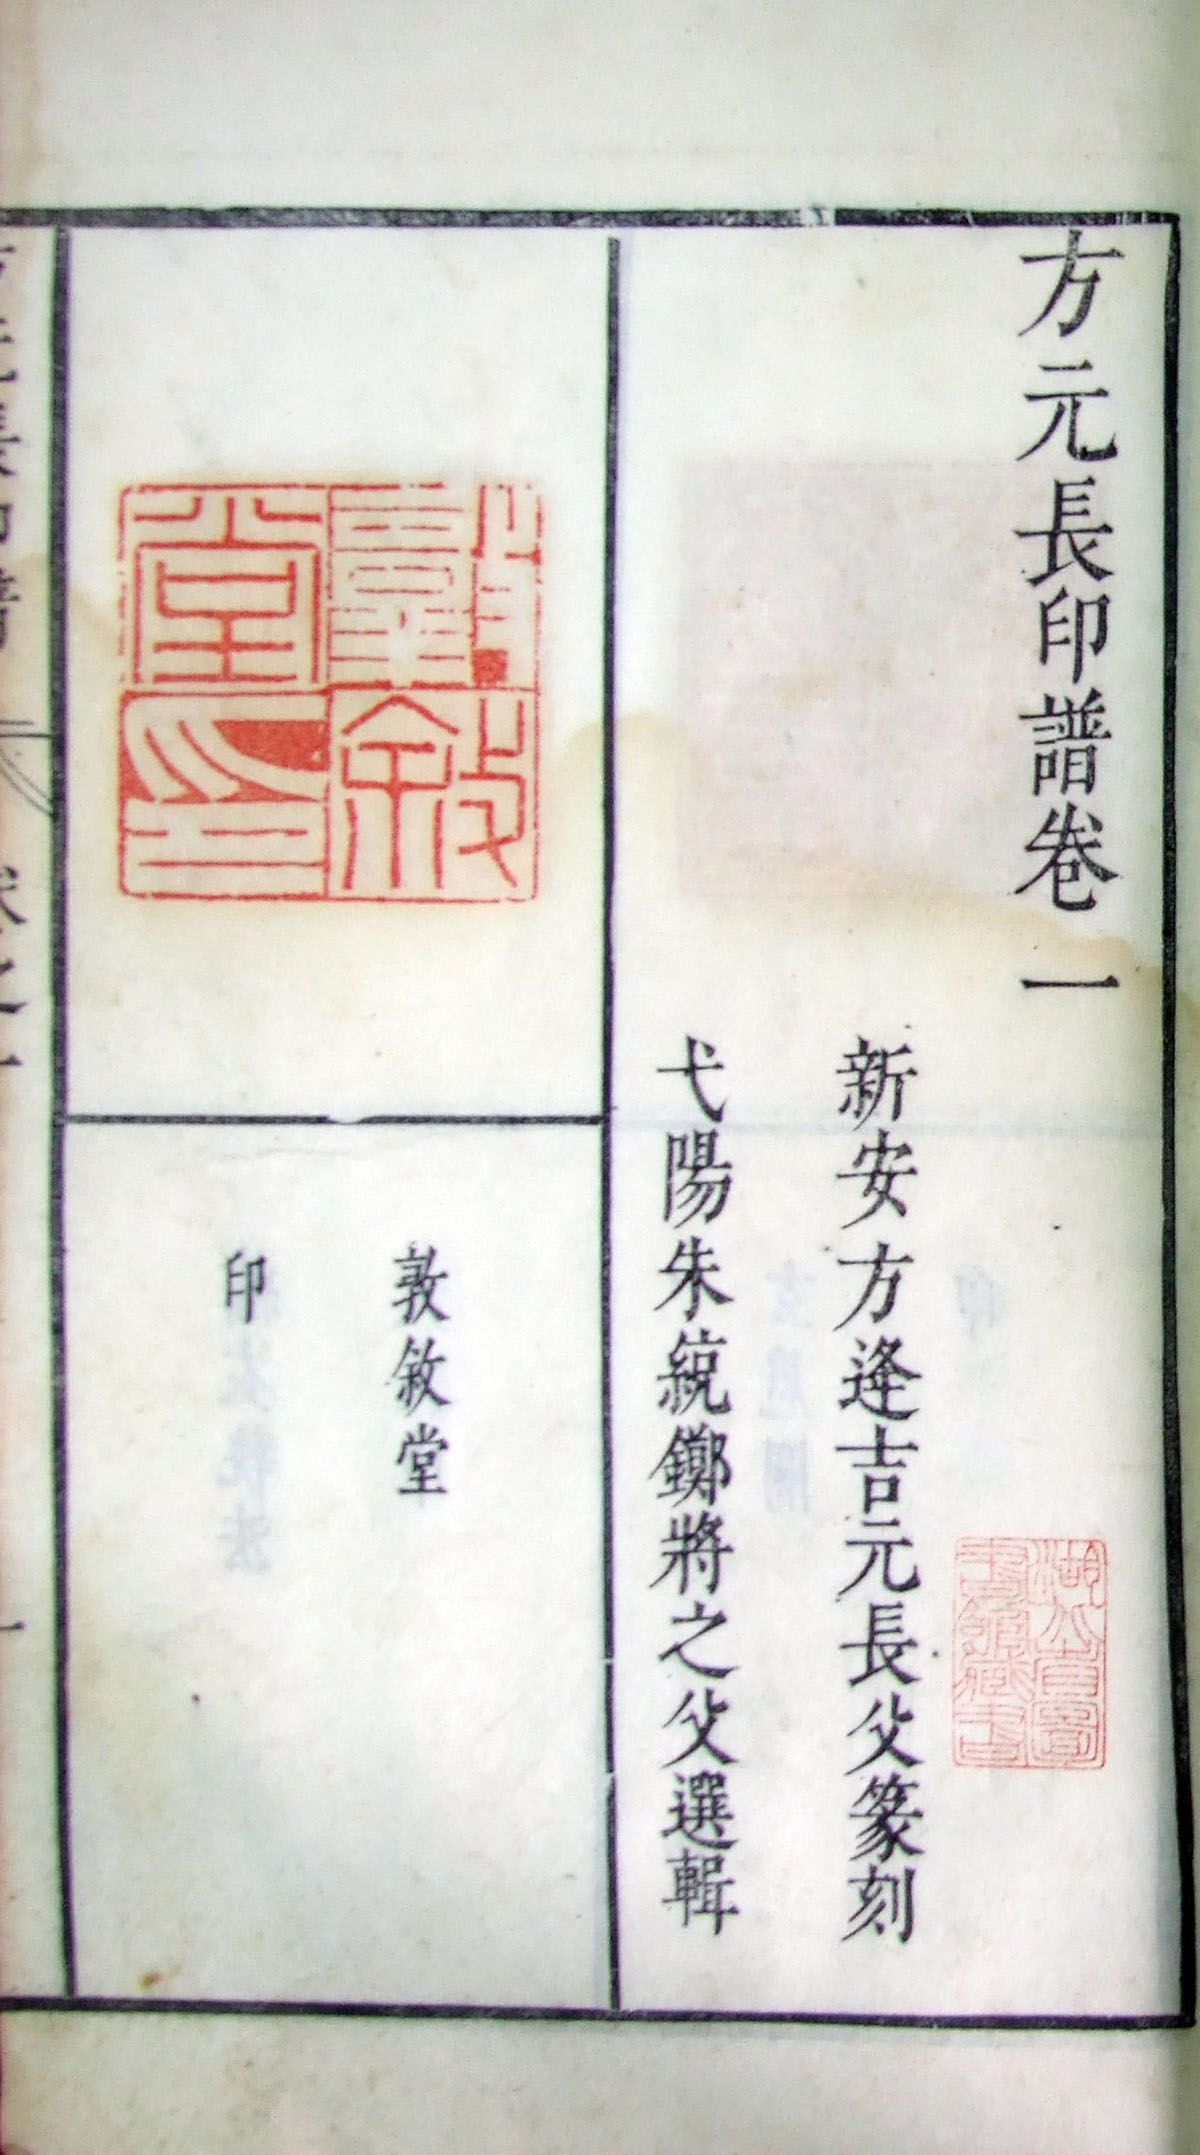 方元長印譜卷一
新安方逢吉元長父篆刻
弋陽朱統𨮜將之父選輯
敦敘堂印
敦敘堂
印